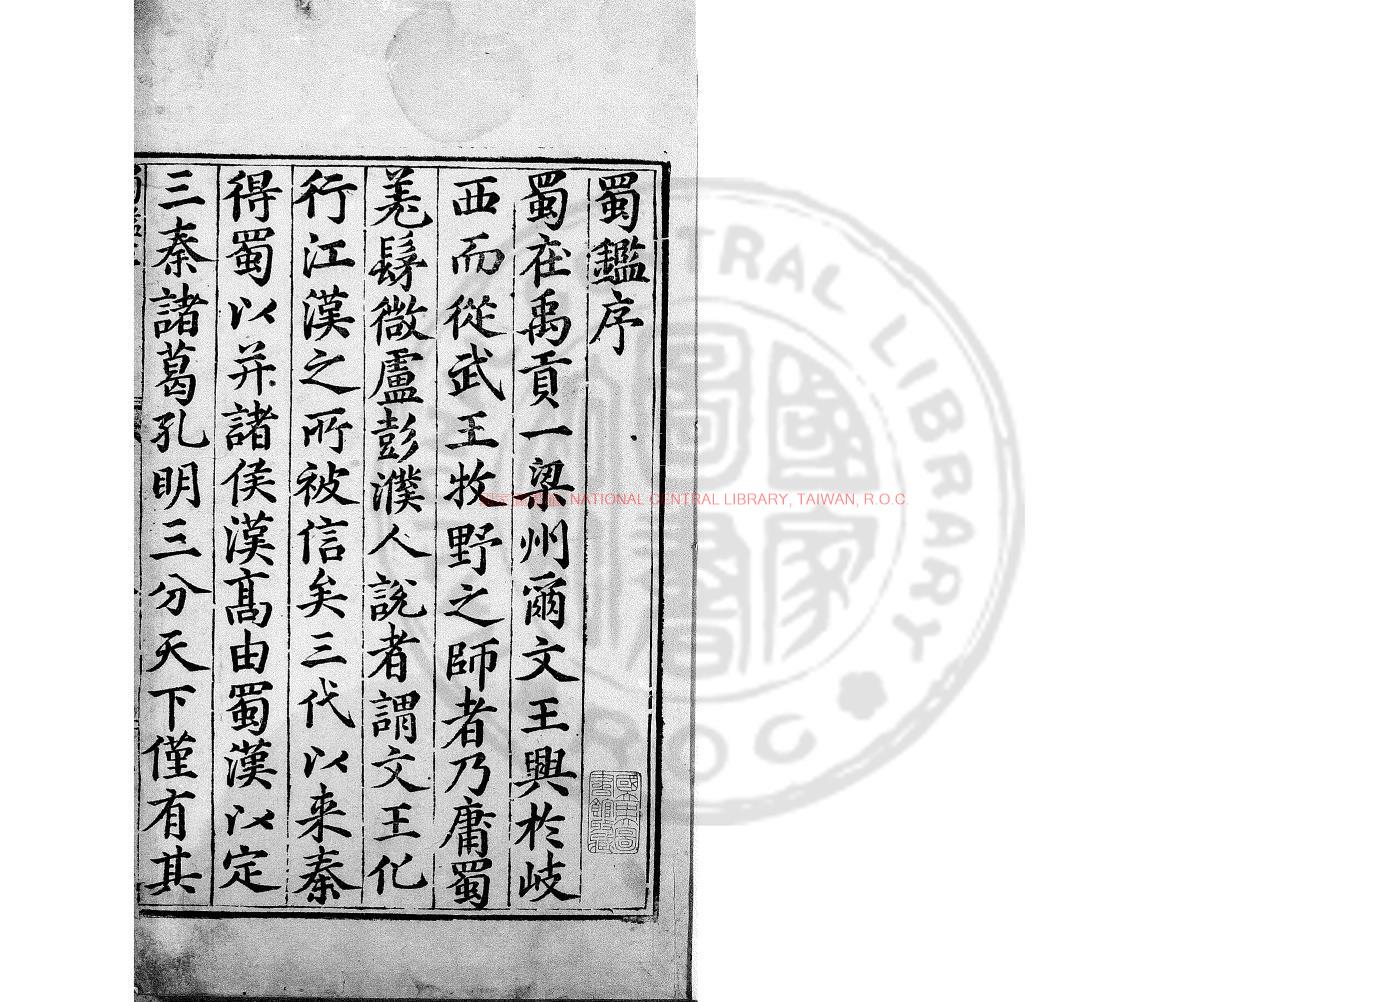 蜀鑑序
蜀在禹貢一梁州爾文王興於岐
西而從武王牧野之師者乃庸蜀
羗髳微盧彭濮人說者謂文王化
行江漢之所被信矣三代以来秦
得蜀以并諸侯漢髙由蜀漢以定
三秦諸葛孔明三分天下僅有其
NATIONAL CENTRAL LIBRARY, TAIWAN, R.O.C.
CENTRAL LIBRARY
ROC